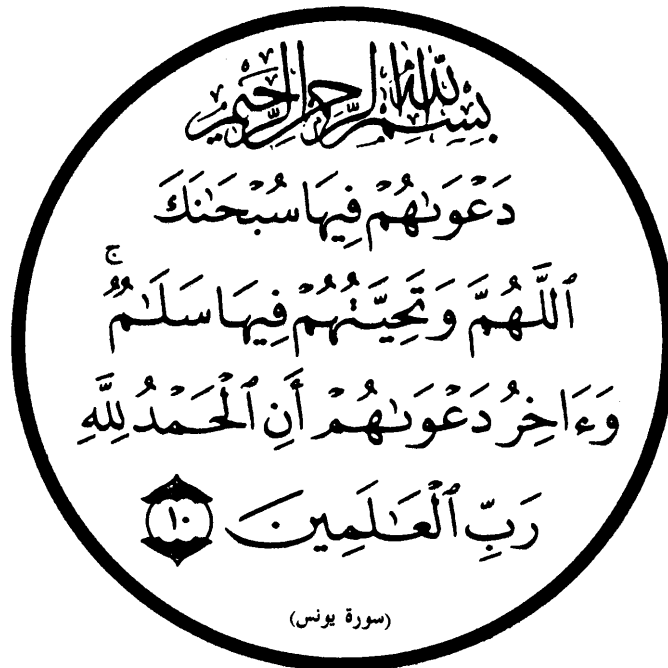 بِسْمِ اللَّهِ الرَّحْمَٰنِ الرَّحِيمِ
دَعْوَىٰهُمْ فِيهَا سُبْحَٰنَكَ
ٱللَّهُمَّ وَتَحِيَّتُهُمْ فِيهَا سَلَٰمٌۚ
وَءَاخِرُ دَعْوَىٰهُمْ أَنِ ٱلْحَمْدُ لِلَّهِ
رَبِّ ٱلْعَٰلَمِينَ ١٠
(سورة يونس)